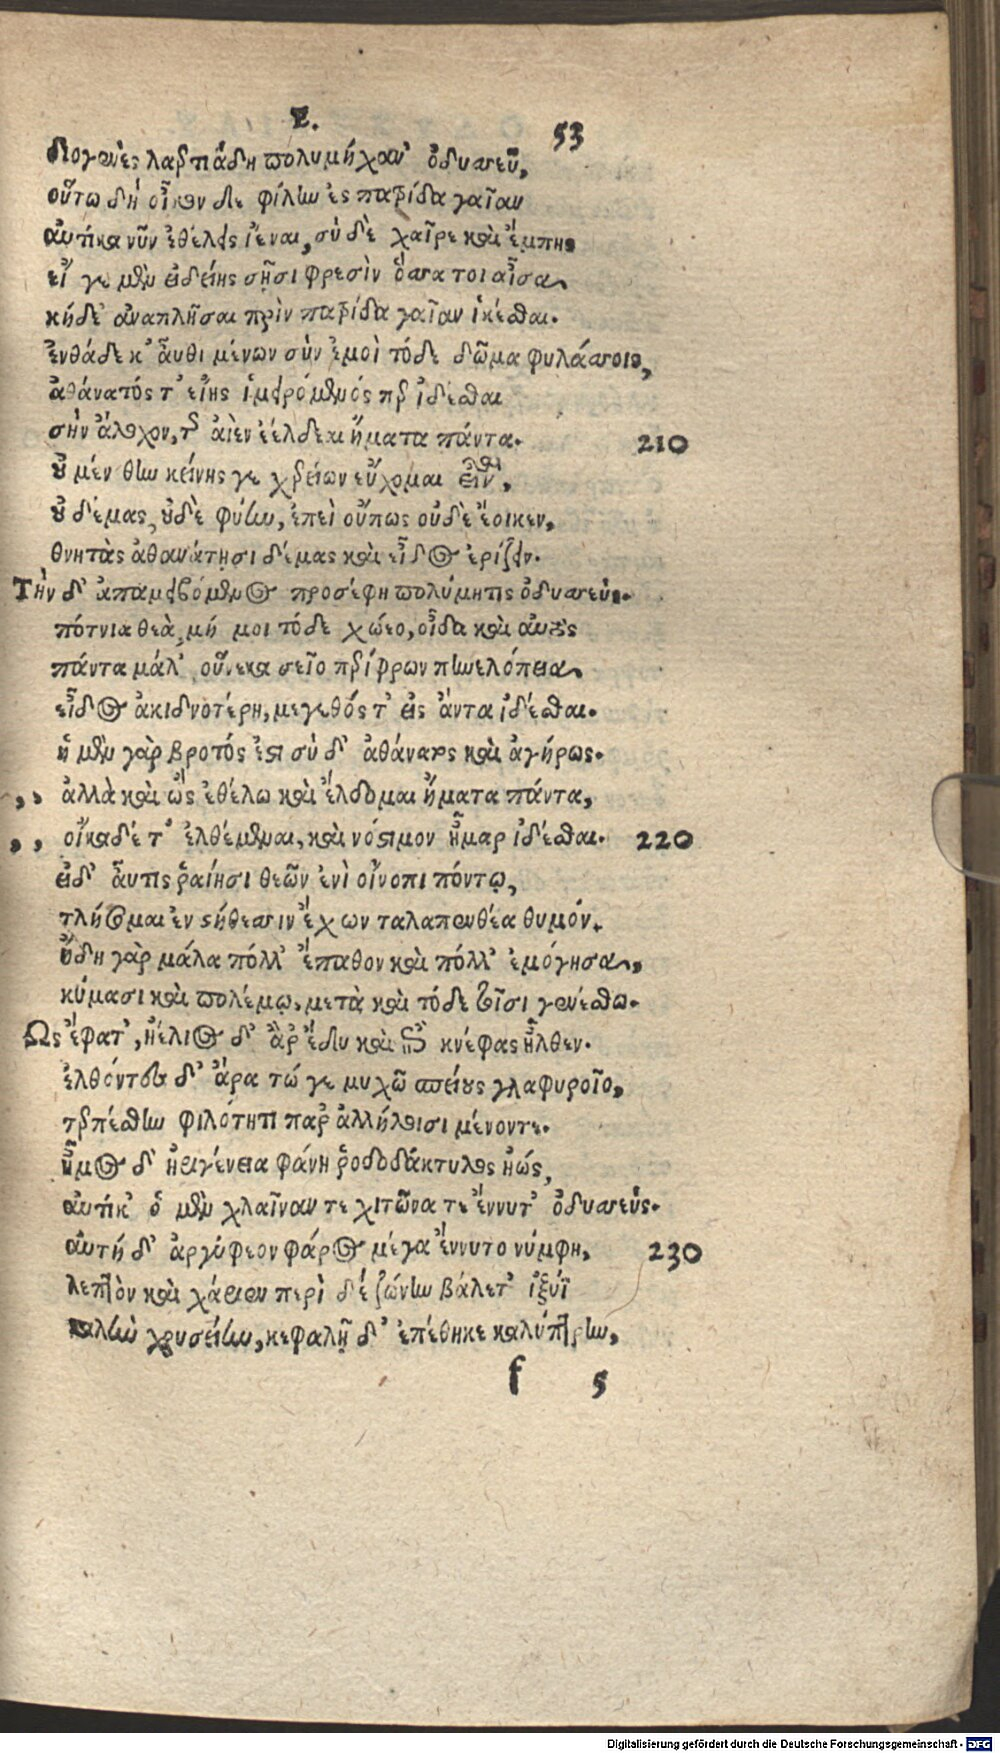 Ε. 53
διογενὲς λαερτιάδη πολυμήχαν' ὀδυσσεῦ,
οὕτω δὴ οἶκον δε φίλην ἐς πατρίδα γαῖαν
αὐτίκα νῦν ἐθέλεις ἰέναι, σὺ δὲ χαῖρε καὶ ἔμπης
εἴ γε μὲν εἰδείης σῇσι φρεσὶν ὅσσα τοι αἶσα
κήδε' ἀναπλῆσαι πρὶν πατρίδα γαῖαν ἱκέσθαι.
ἐνθάδε κ' αὖθι μένων σὺν ἐμοὶ τόδε δῶμα φυλάσσοις,
ἀθάνατός τ' εἴης ἱμειρόμενός περ ἰδέσθαι
σὴν ἄλοχον, τῆς αἰὲν ἐέλδεαι ἤματα πάντα. 210
οὐ μέν θην κείνης γε χερείων εὔχομαι εἶναι,
οὐ δέμας, οὐδὲ φύην, ἐπεὶ οὔπως οὐδὲ ἔοικεν,
θνητὰς ἀθανάτῃσι δέμας καὶ εἶδος ἐρίζειν.
Τὴν δ' ἀπαμειβόμενος προσέφη πολύμητις ὀδυσσεύς.
πότνια θεὰ, μή μοι τόδε χώεο, οἶδα καὶ αὐτὸς
πάντα μάλ', οὕνεκα σεῖο περίφρων πηνελόπεια
εἶδος ἀκιδνοτέρη, μεγεθός τ' εἰς ἄντα ἰδέσθαι.
ἡ μὲν γὰρ βροτός ἐστι σὺ δ' ἀθάνατος καὶ ἀγήρως.
,, ἀλλὰ καὶ ὣς ἐθέλω καὶ ἐλδομαι ἤματα πάντα,
,, οἴκαδέ τ' ἐλθέμεναι, καὶ νόστιμον ἦμαρ ἰδέσθαι. 220
εἰδ' αὖτις ῥαίῃσι θεῶν ἐνὶ οἴνοπι πόντῳ,
τλήσομαι ἐν στήθεσσιν ἔχων ταλαπενθέα θυμόν.
ἤδη γὰρ μάλα πόλλ' ἔπαθον καὶ πόλλ' ἐμόγησα,
κύμασι καὶ πολέμῳ, μετὰ καὶ τόδε τοῖσι γενέσθω.
Ὣς ἔφατ', ἠέλιος δ' ἂρ ἔδυ καὶ ἐπὶ κνέφας ἦλθεν.
ἐλθόντων δ' ἄρα τώ γε μυχῶ σπείους γλαφυροῖο,
τερπέσθην φιλότητι παρ' ἀλλήλοισι μένοντε.
ἦμος δ' ἠριγένεια φάνη ῥοδοδάκτυλος ἠώς,
αὐτίκ' ὁ μὲν χλαῖναν τε χιτῶνα τε ἕννυτ' ὀδυσσεύς.
αὐτὴ δ' ἀργύφεον φάρος μέγα ἕννυτο νύμφη, 230
λεπτὸν καὶ χάριεν περὶ δέ ζώνην βάλετ' ἰξυῖ
καλὴν χρυσείην, κεφαλῇ δ' ἐπέθηκε καλύπτρην,
f 5
Digitalisierung gefördert durch die Deutsche Forschungsgemeinschaft - DFG